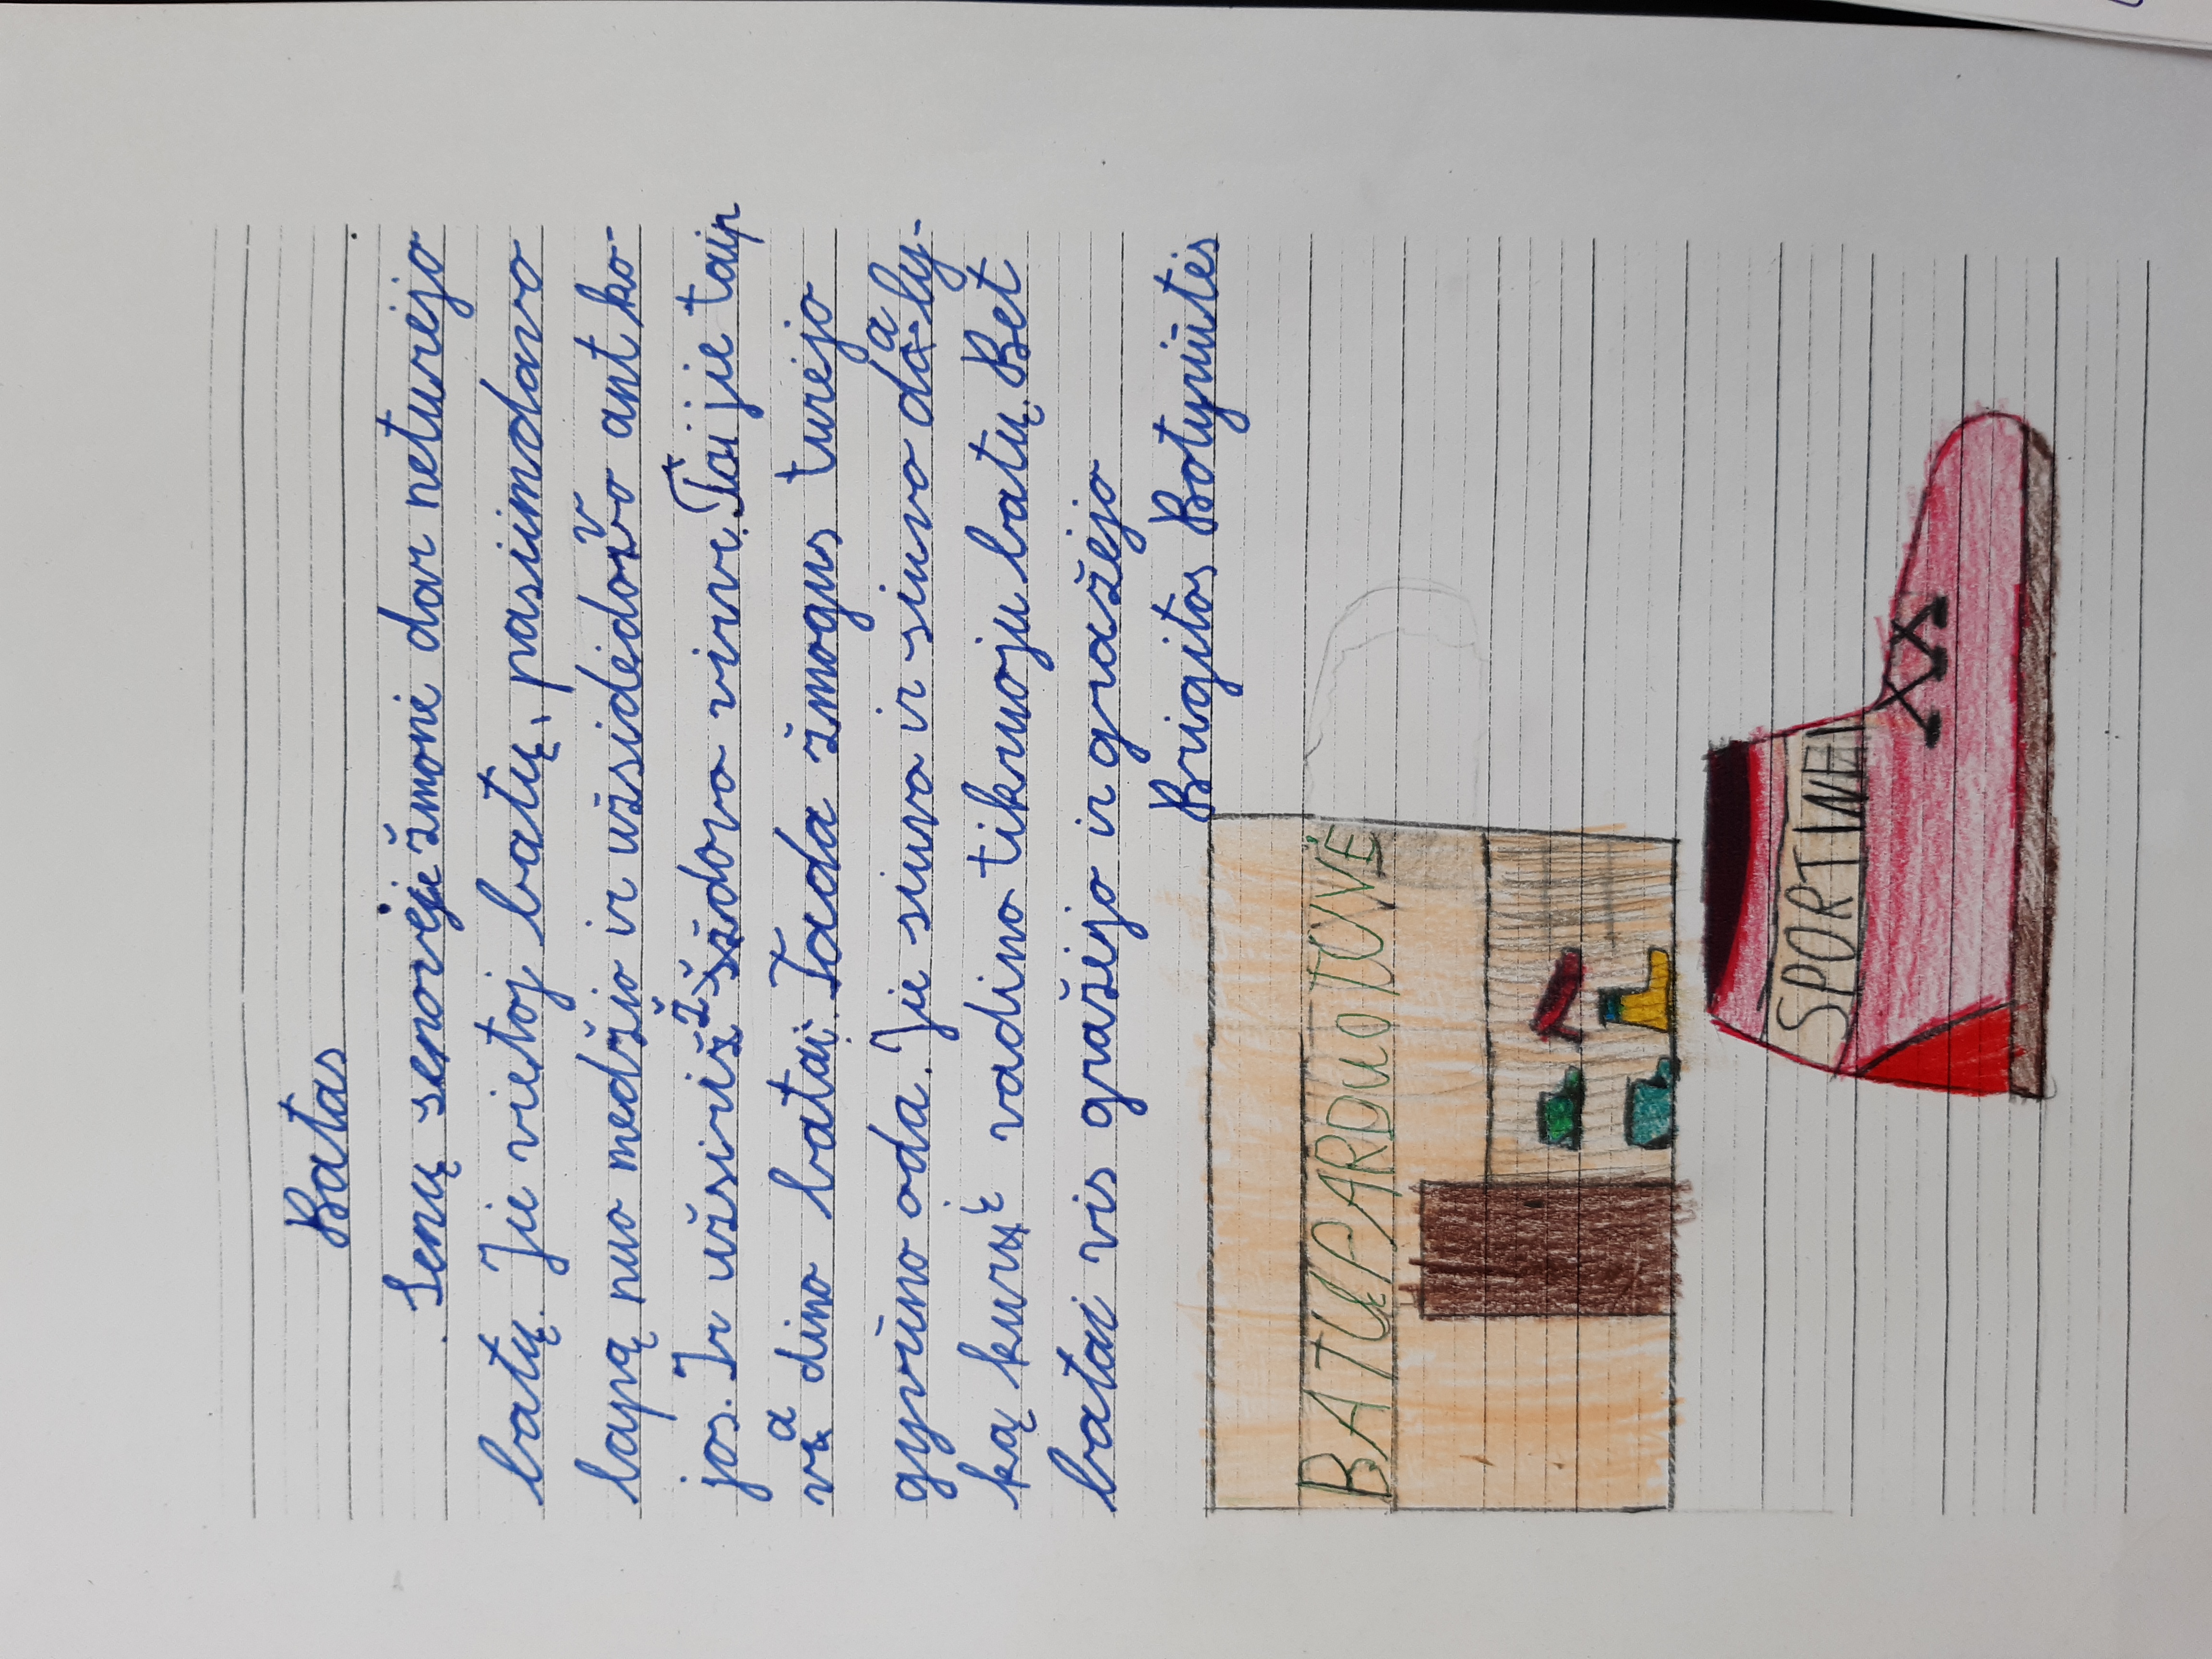 Batas
Senų senovėje žmonė dar neturėjo
batų. Jie vietoj batų, pasiimdavo
lapą nuo medžio ir užsidėdavo ant ko-
jos. Ir užsiriždavo virve. Tai jie taip
va dino batai. Tada žmogus turėjo
gyvūno oda. Jie siuvo ir siuvo daly-
ką kurį vadino tikruoju batų. Bet
batai vis gražėjo ir gražėjo
Brigitos Batyriūtės
BATŲ PARDUOTUVĖ
SPORTINEI